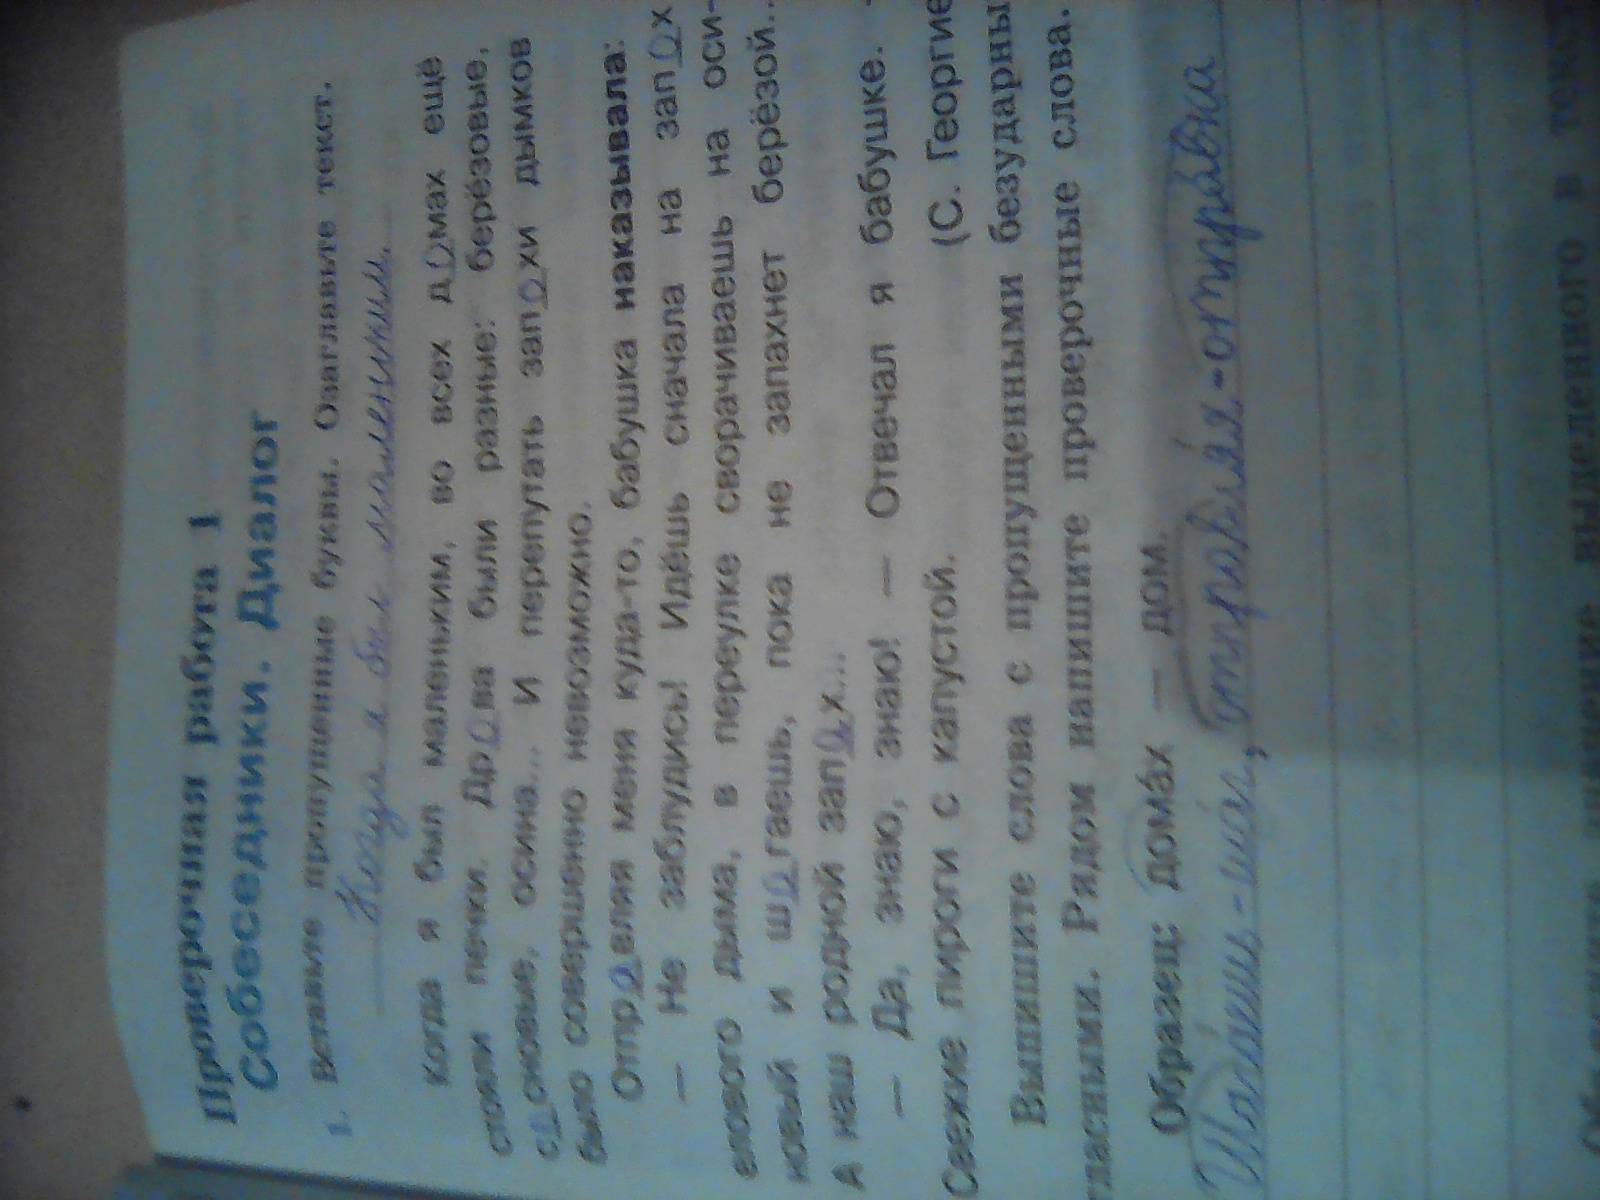 Проверочная работа 1
Собеседники. Диалог
1. Вставьте пропущенные буквы. Озаглавьте текст.
Когда я был маленьким.
Когда я был маленьким, во всех домах ещё
стояли печки. Дрова были разные: берёзовые,
сосновые, осина... И перепутать запохи дымков
было совершенно невозможно.
Отправляя меня куда-то, бабушка наказывала:
— Не заблудись! Идёшь сначала на запох
елового дыма, в переулке сворачиваешь на оси-
новый и шагаешь, пока не запахнет берёзой...
А наш родной запах...
— Да, знаю, знаю! — Отвечал я бабушке. -
Свежие пироги с капустой. (С. Георгие
Выпишите слова с пропущенными безударны
гласными. Рядом напишите проверочные слова.
Образец: домах — дом.
- шаг, отправка
значение выделенного в